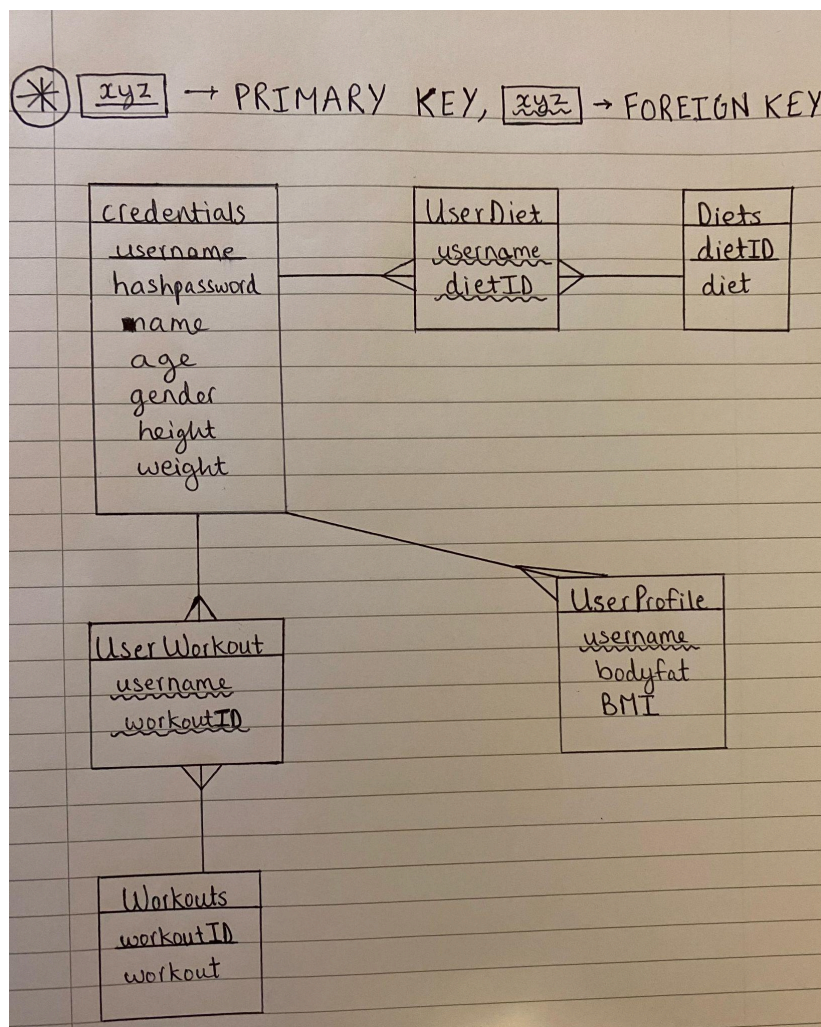 xyz → PRIMARY KEY, xyz → FOREIGN KEY
credentials
username
hashpassword
name
age
gender
height
weight
UserDiet
username
dietID
Diets
dietID
diet
UserProfile
username
bodyfat
BMI
UserWorkout
username
workoutID
Workouts
workoutID
workout